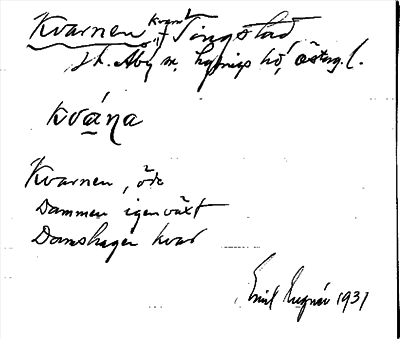 Kvarnen kvant Tingstad
St. Åby sn, Lysings hd, Östergl.
kvá̱ŋa
Kvarnen, öde
Dammen igenväxt
Damshagen kvar
Emil 1931